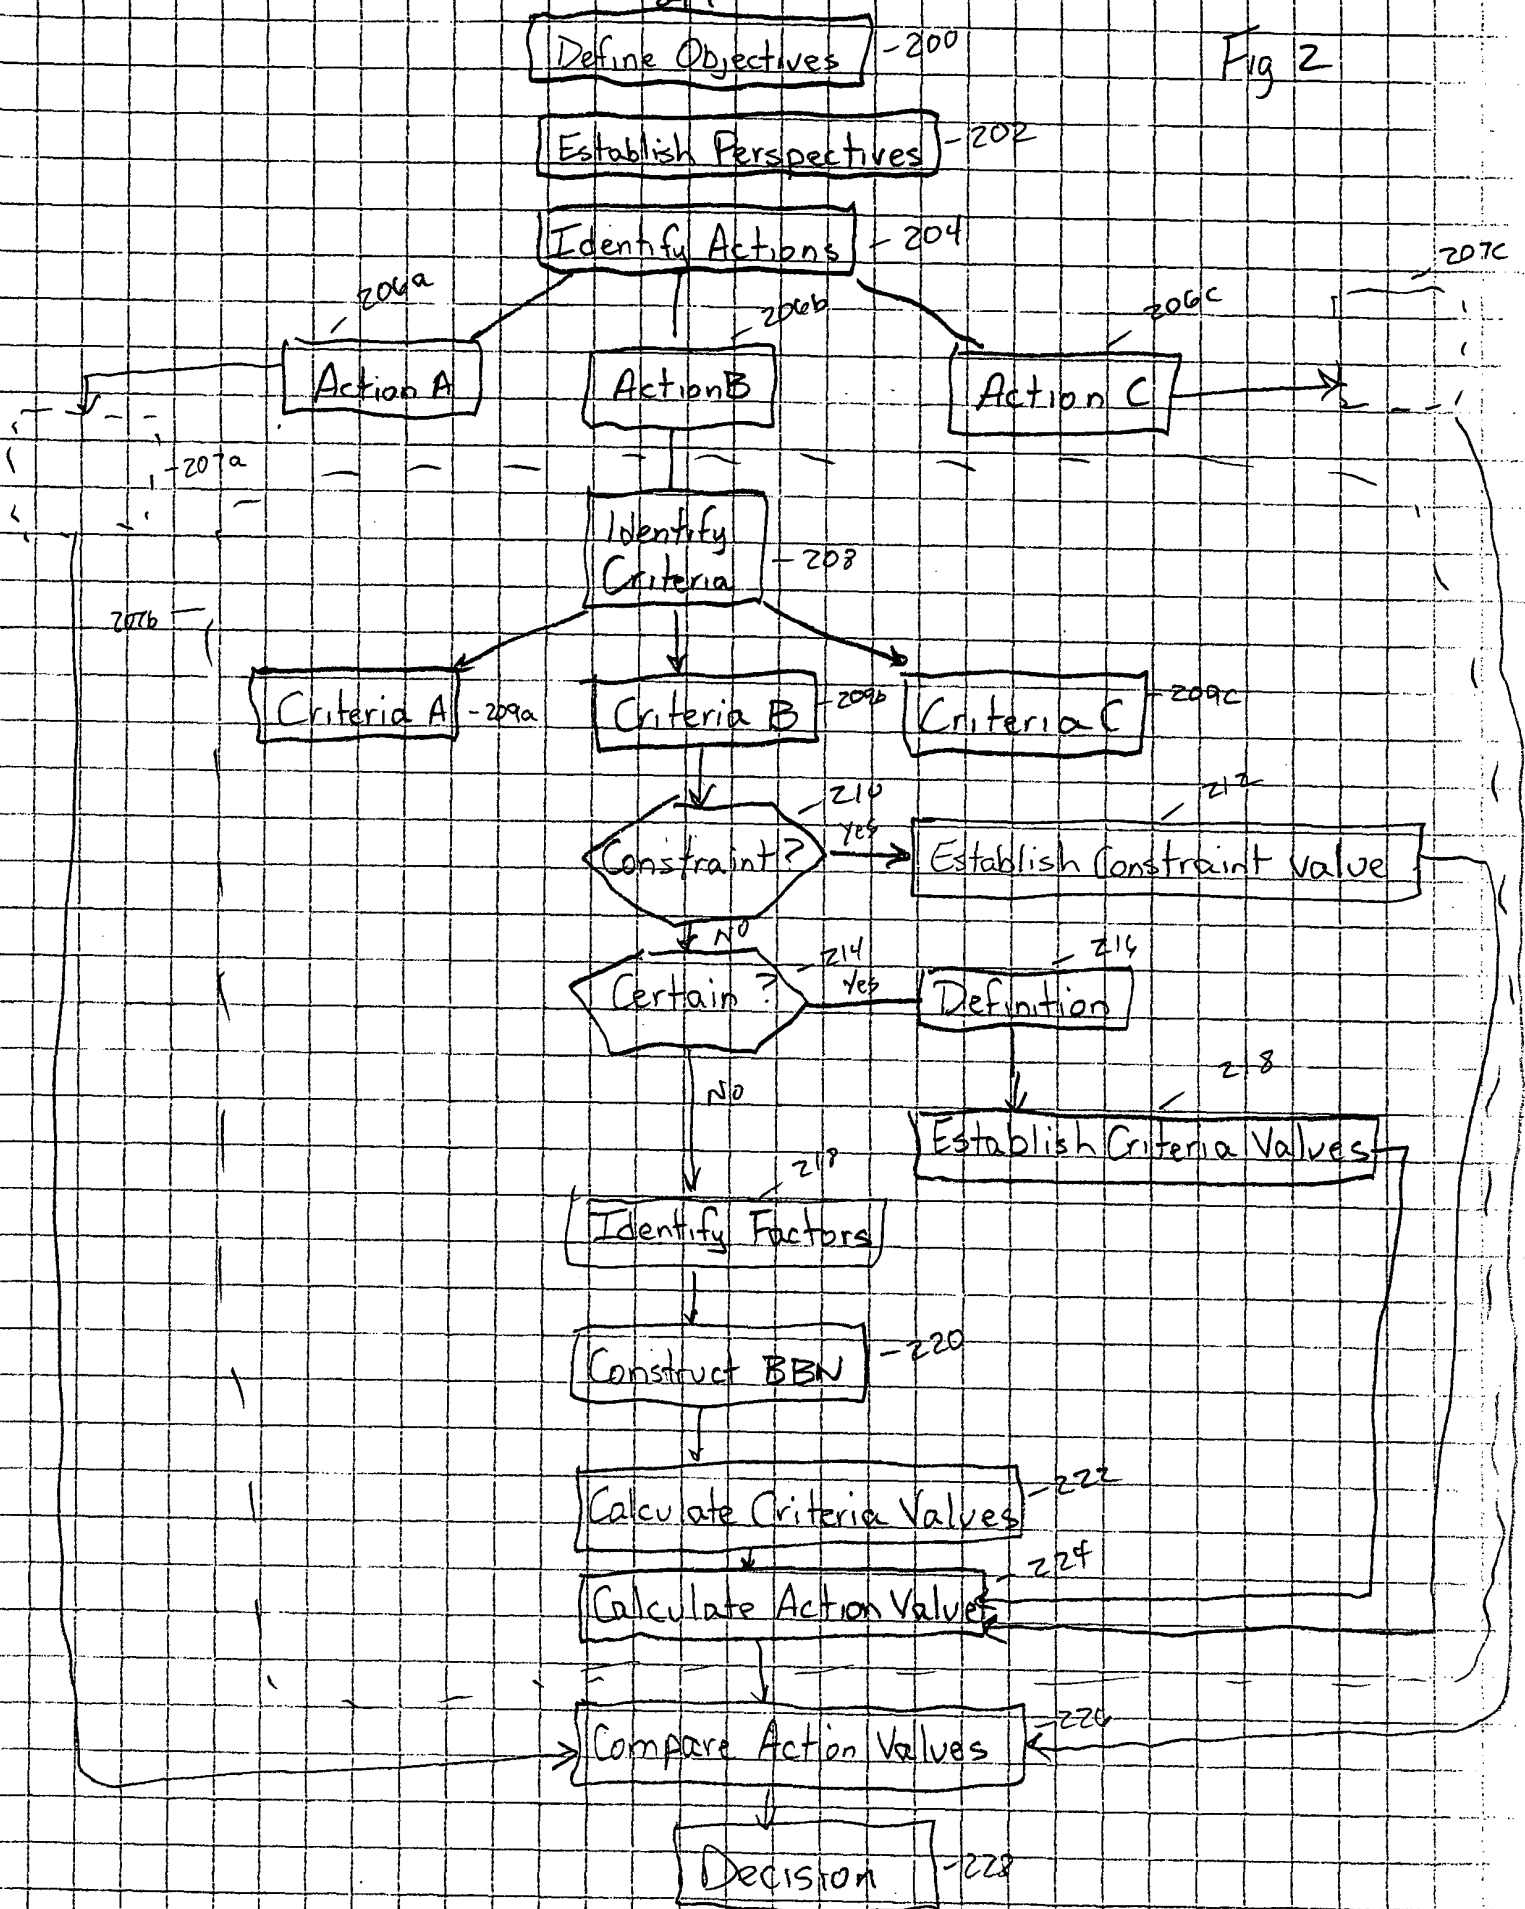 Define Objectives -200
Fig 2
Establish Perspectives -202
Identify Actions - 204
207c
206a
206b
206c
Action A
Action B
Action C
-207a
Identify
Criteria
-208
207b
Criteria A -209a
Criteria B -209b
Criteria C -209c
-210
212
Constraint?
Yes
Establish Constraint Value
NO
214
216
Certain ?
Yes
Definition
NO
218
Establish Criteria Values
218
Identify Factors
Construct BBN -220
Calculate Criteria Values -222
Calculate Action Values - 224
Compare Action Values -226
Decision -228